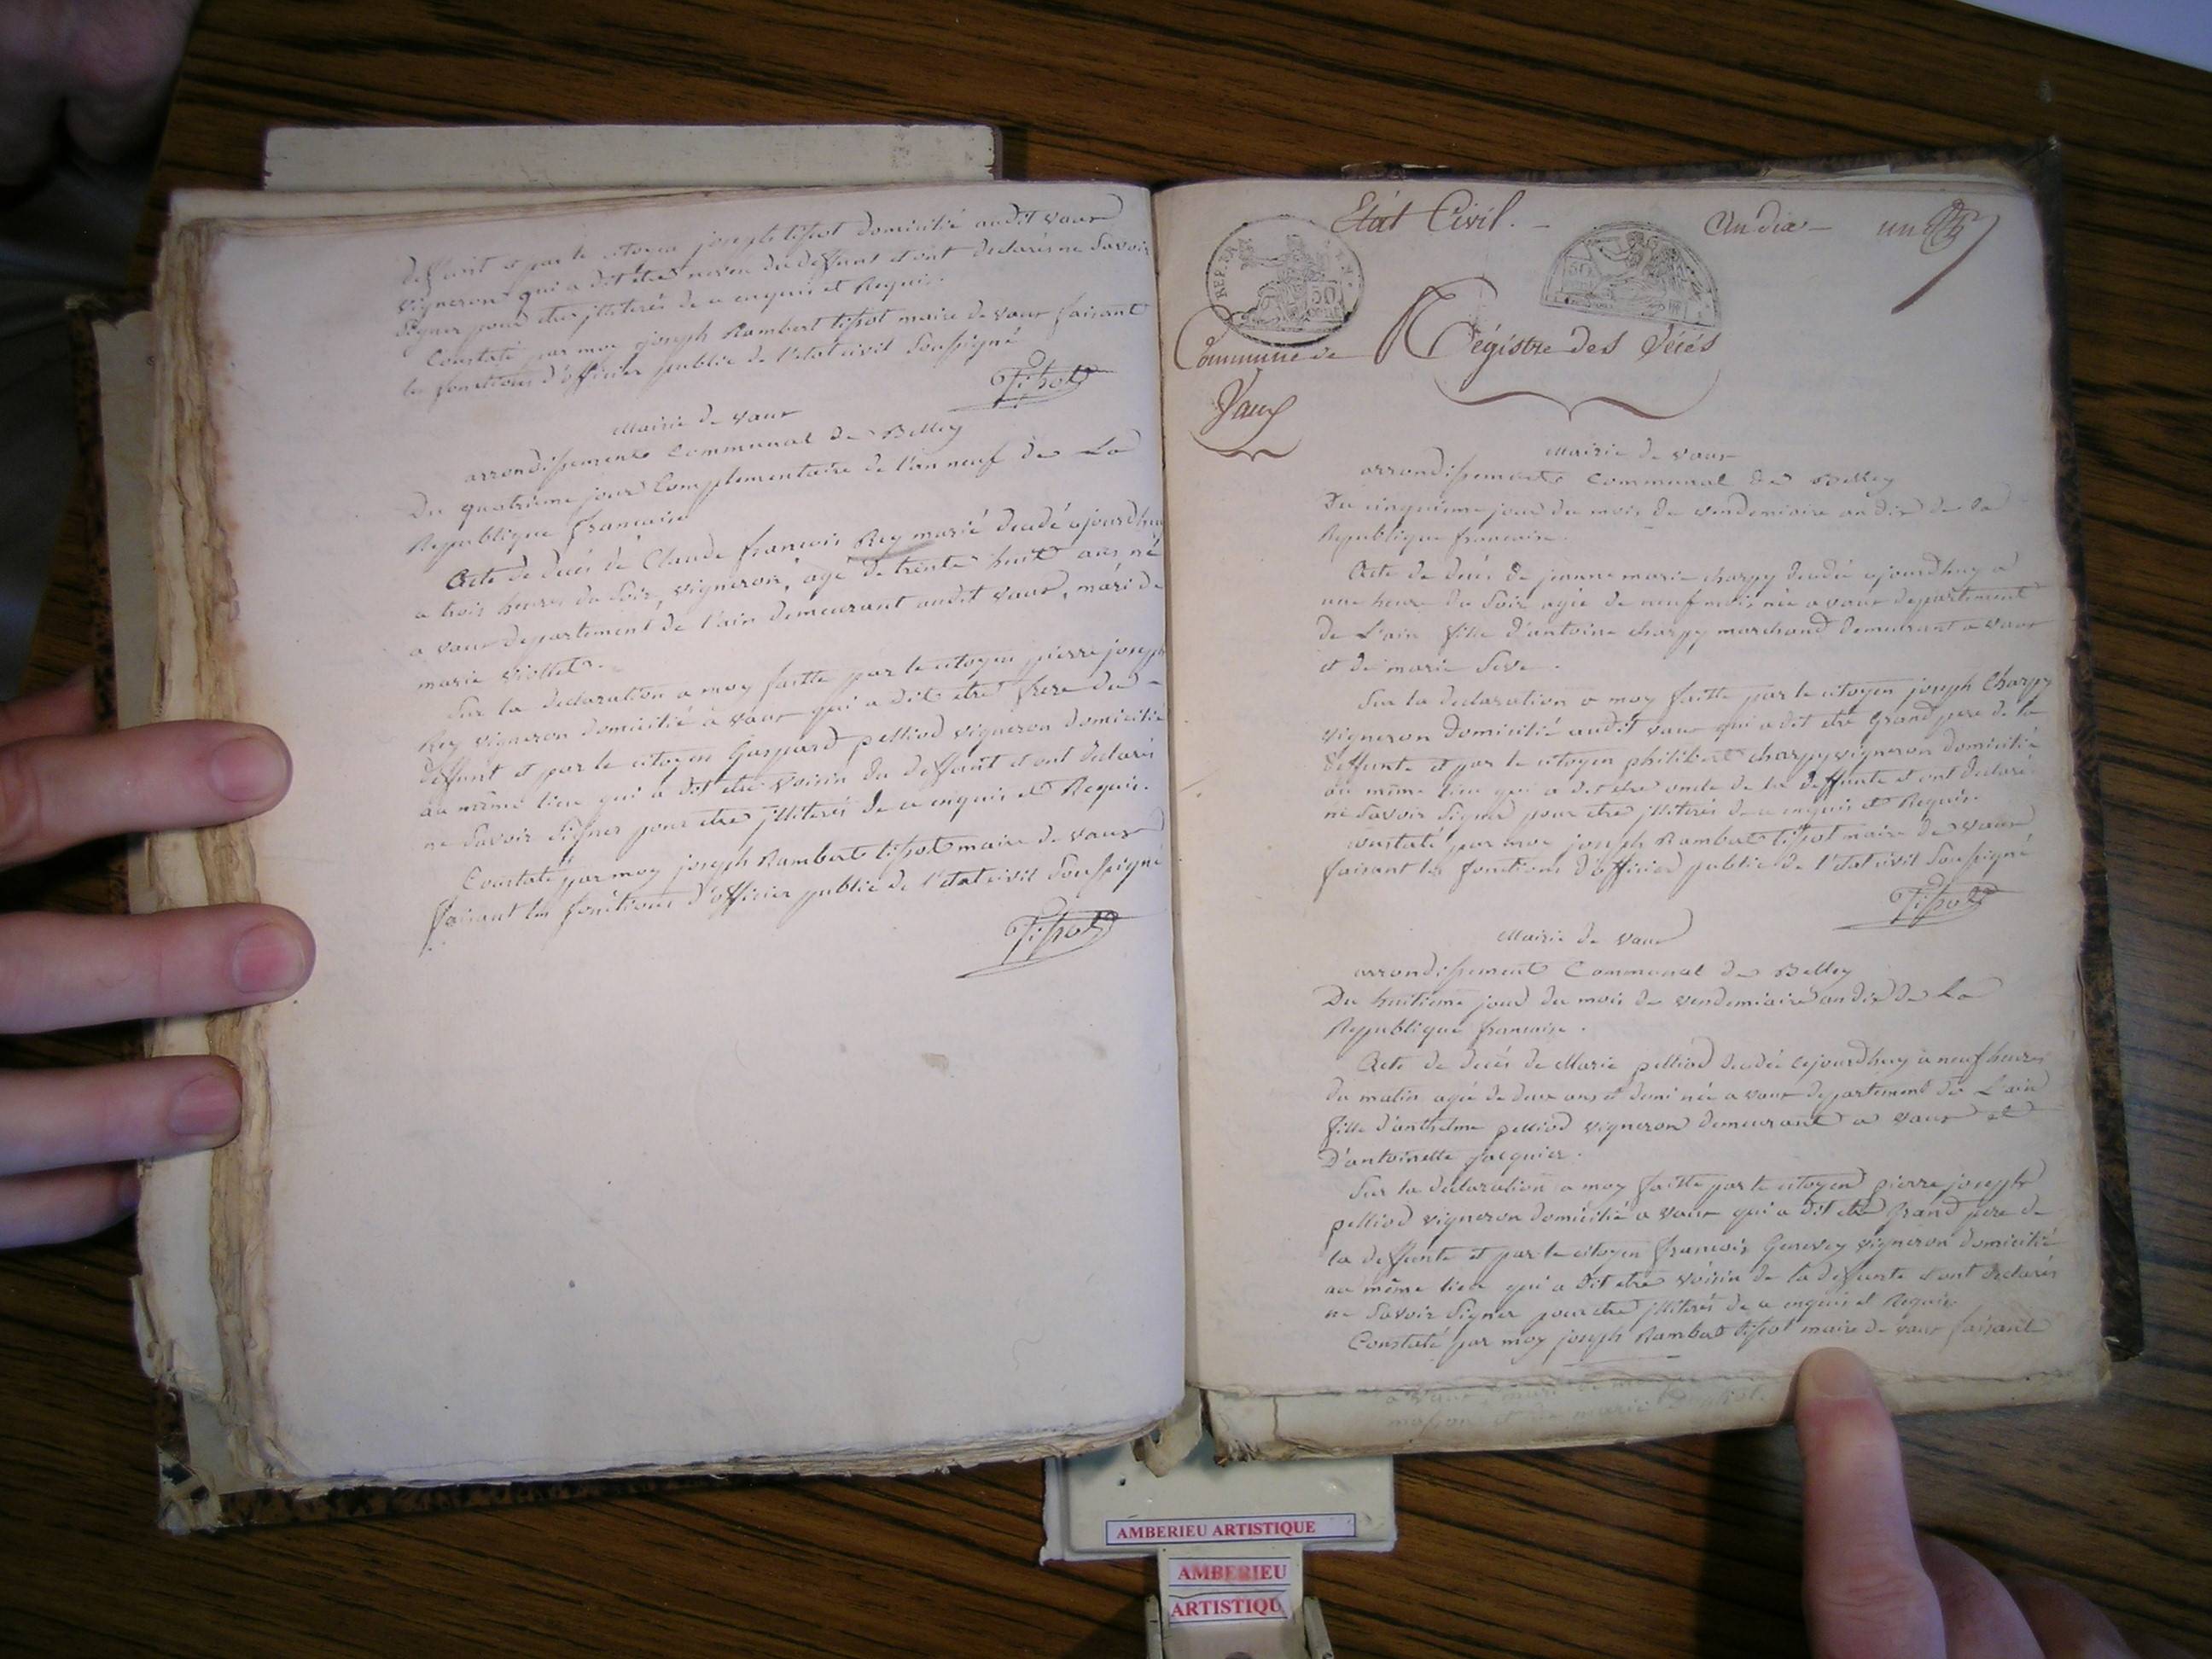 deffunt et par le citoyen joseph tissot domicilié audit vaux
vigneron qui a dit être neveu du deffunt et ont declarés ne Savoir
Signer pour etre jlliterés de ce enquis et Requis.
Constaté par moy joseph Rambert tissot maire de vaux faisant
les fonctions d'officier public de l'état civil Soussigné
Tissot
Mairie de vaux
arrondissement Communal de Belley
Du quatrieme jour Complementaire de l'an neuf de La
Republique francaise
Acte de decés de Claude francois Rey marié decedé ajourdhuy
a trois heures du Soir, vigneron, agé de trente huit ans né
a vaux departement de l'ain demeurant audit vaux, mari de
marie viollet.
Sur la declaration a moy faitte par le citoyen pierre joseph
Rey vigneron domicilié a vaux qui a dit etre frere du
deffunt et par le citoyen Gaspard pelliod vigneron domicilié
au même lieu qui a dit etre voisin du deffunt et ont declarés
ne Savoir Signer pour etre jlliterés de ce enquis et Requis.
Constaté par moy joseph Rambert tissot maire de vaux
faisant les fonctions d'officier public de l'état civil Soussigné
Tissot
Etat Civil. - An dix - un
REP. FRA
50
Commune de Régistre des Décés
Vaux
Mairie de vaux
arrondissement Communal de Belley
Du cinquieme jour du mois de vendemiaire an dix de la
Republique francaise.
Acte de decés de jeanne marie charpy decedée ajourdhuy a
une heure du Soir agée de neuf mois née a vaux departement
de L'ain fille d'antoine charpy marchand demeurant a vaux
et de marie Seve.
Sur la declaration a moy faitte par le citoyen joseph Charpy
vigneron domicilié audit vaux qui a dit etre Grand pere de la
deffunte et par le citoyen philibert charpy vigneron domicilié
au même lieu qui a dit etre oncle de la deffunte et ont declaré
ne Savoir Signer pour etre jlliterés de ce enquis et Requis.
constaté par moy joseph Rambert tissot maire de vaux
faisant les fonctions d'officier public de l'état civil Soussigné
Tissot
Mairie de vaux
arrondissement Communal de Belley
Du huitieme jour du mois de vendemiaire an dix de La
Republique francaise.
Acte de decés de Marie pelliod decedée cejourdhuy a neuf heures
du matin agée de deux ans et demi née a vaux departement de L'ain
fille d'anthelme pelliod vigneron demeurant a vaux et
D'antoinette jacquier.
Sur la declaration a moy faitte par le citoyen pierre joseph
pelliod vigneron domicilié a vaux qui a dit etre Grand pere de
la deffunte et par le citoyen francois Genevey vigneron domicilié
au même lieu qui a dit etre voisin de la defunte et ont declarés
ne Savoir Signer pour etre jlliterés de ce enquis et Requis
Constaté par moy joseph Rambert tissot maire de vaux faisant
AMBERIEU ARTISTIQUE
AMBERIEU
ARTISTIQU